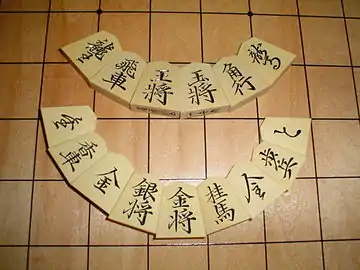 龍王
飛車
王將
玉將
角行
龍馬
香車
銀將
金將
桂馬
歩兵
と